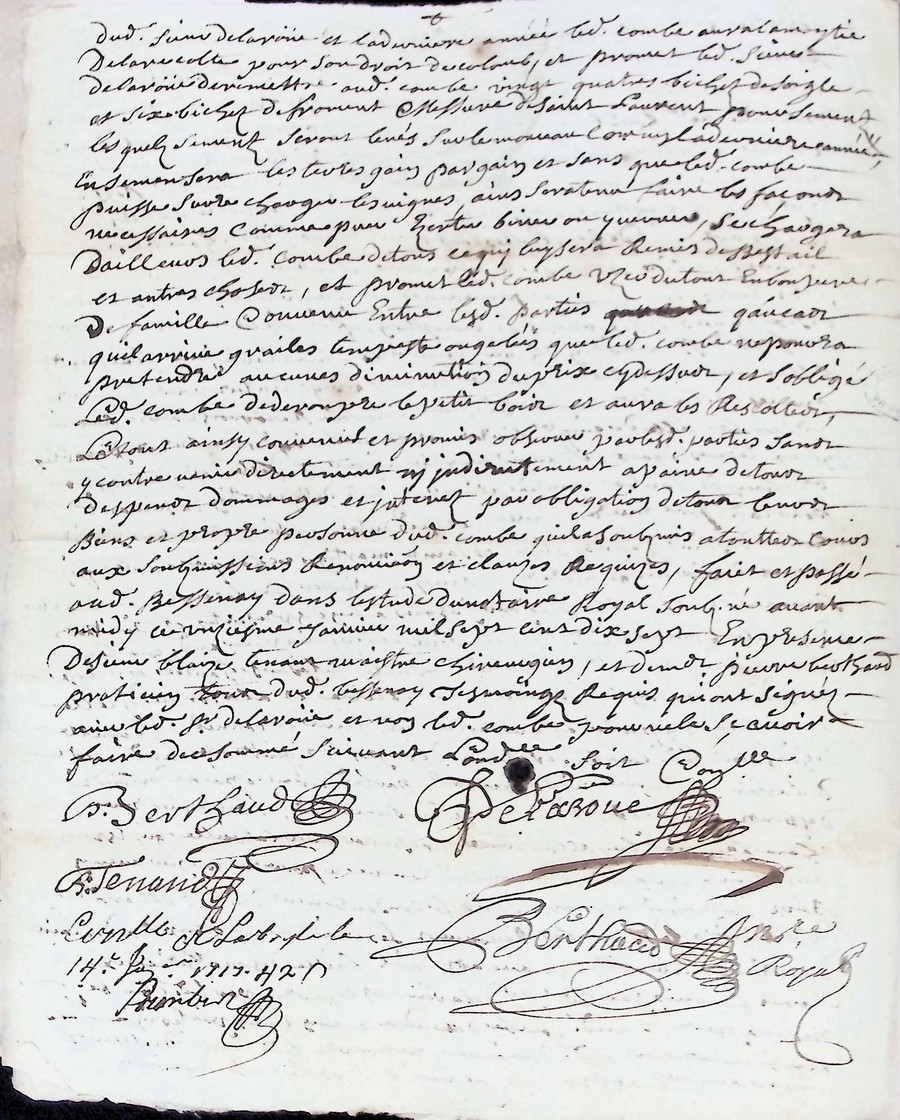 dud. sieur delaroüe et laderniere année led. combe aura la moytié
De la recolte pour son droit de colonb, et promet led. sieur
delaroüe de remettre aud. combe vingt quatres bichet de soigle
et six bichet de froment Messure de saint Laurent pour sement
les quelz sement seront levés sur le monceau Comung laderniere année,
Ensemensera les terres gain par gain et sans que led. combe
puisse surre charger les vignes, ains sera tenu faire les façons
necessaires Comme biner ou, se chargera
Dailleurs led. combe de tous ce qui luy sera Remis de bestail
et autres choses, et promet led. combe du tout En bon pere
De famille Convenu Entre lesd. parties qu'au cas
quil arrive grailes tempeste ou gelées que led. combe ne poura
pretendre aucunes diminution du prix cy dessus, et s'oblige
Led. combe de derompre le petit bois et aura les Recoltes,
Le tout ainsy convenu et promis observer par lesd. parties sans
y contrevenir directement ny indirectement a paine de tous
despens dommages et interest par obligation de tous leurs
Biens et propre personne dud. combe quil a soubmis a touttes Cours
aux soubmissions Renonciaōn et clauzes Requizes, faict et passé
aud. Bessenay dans lestude du notaire Royal soub.né avant
midy ce unzieme janvier mil sept cent dix sept En presence
De sieur blaize tenant maistre chirurgien, et de mōe pierre berthaud
praticien dud. bessenay Tesmoings Requis qui ont signés
avec led. sr delaroüe et non led. combe pour ne le sçavoir
faire de ce sommé suivant Lordce soit Conllé
P. Berthaud Delaroue
B. Tenand
Conllé a Larbresle le
14e janer 1717. 42
Berthaud Nre
Royal